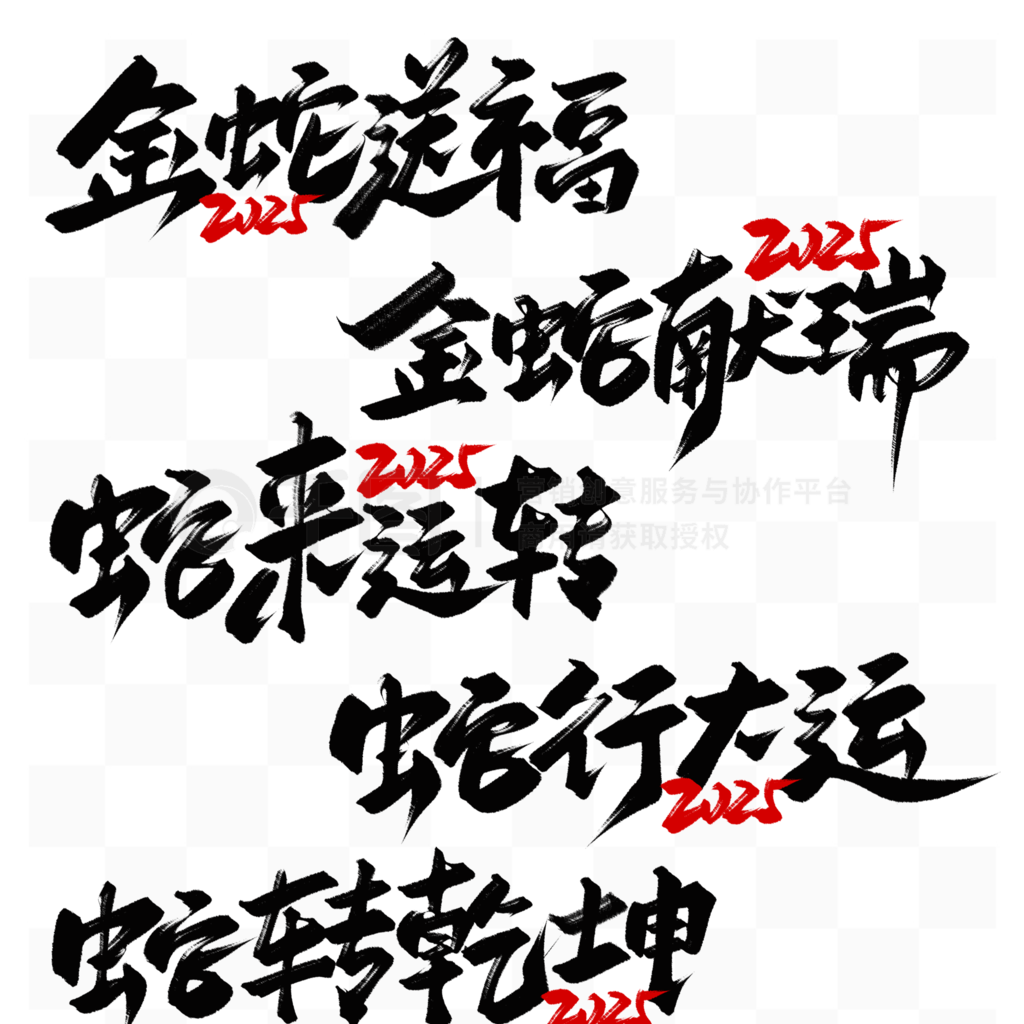 金蛇送福
2025
2025
金蛇献瑞
2025
蛇来运转
营销创意服务与协作平台
商用请获取授权
蛇行大运
2025
蛇转乾坤
2025